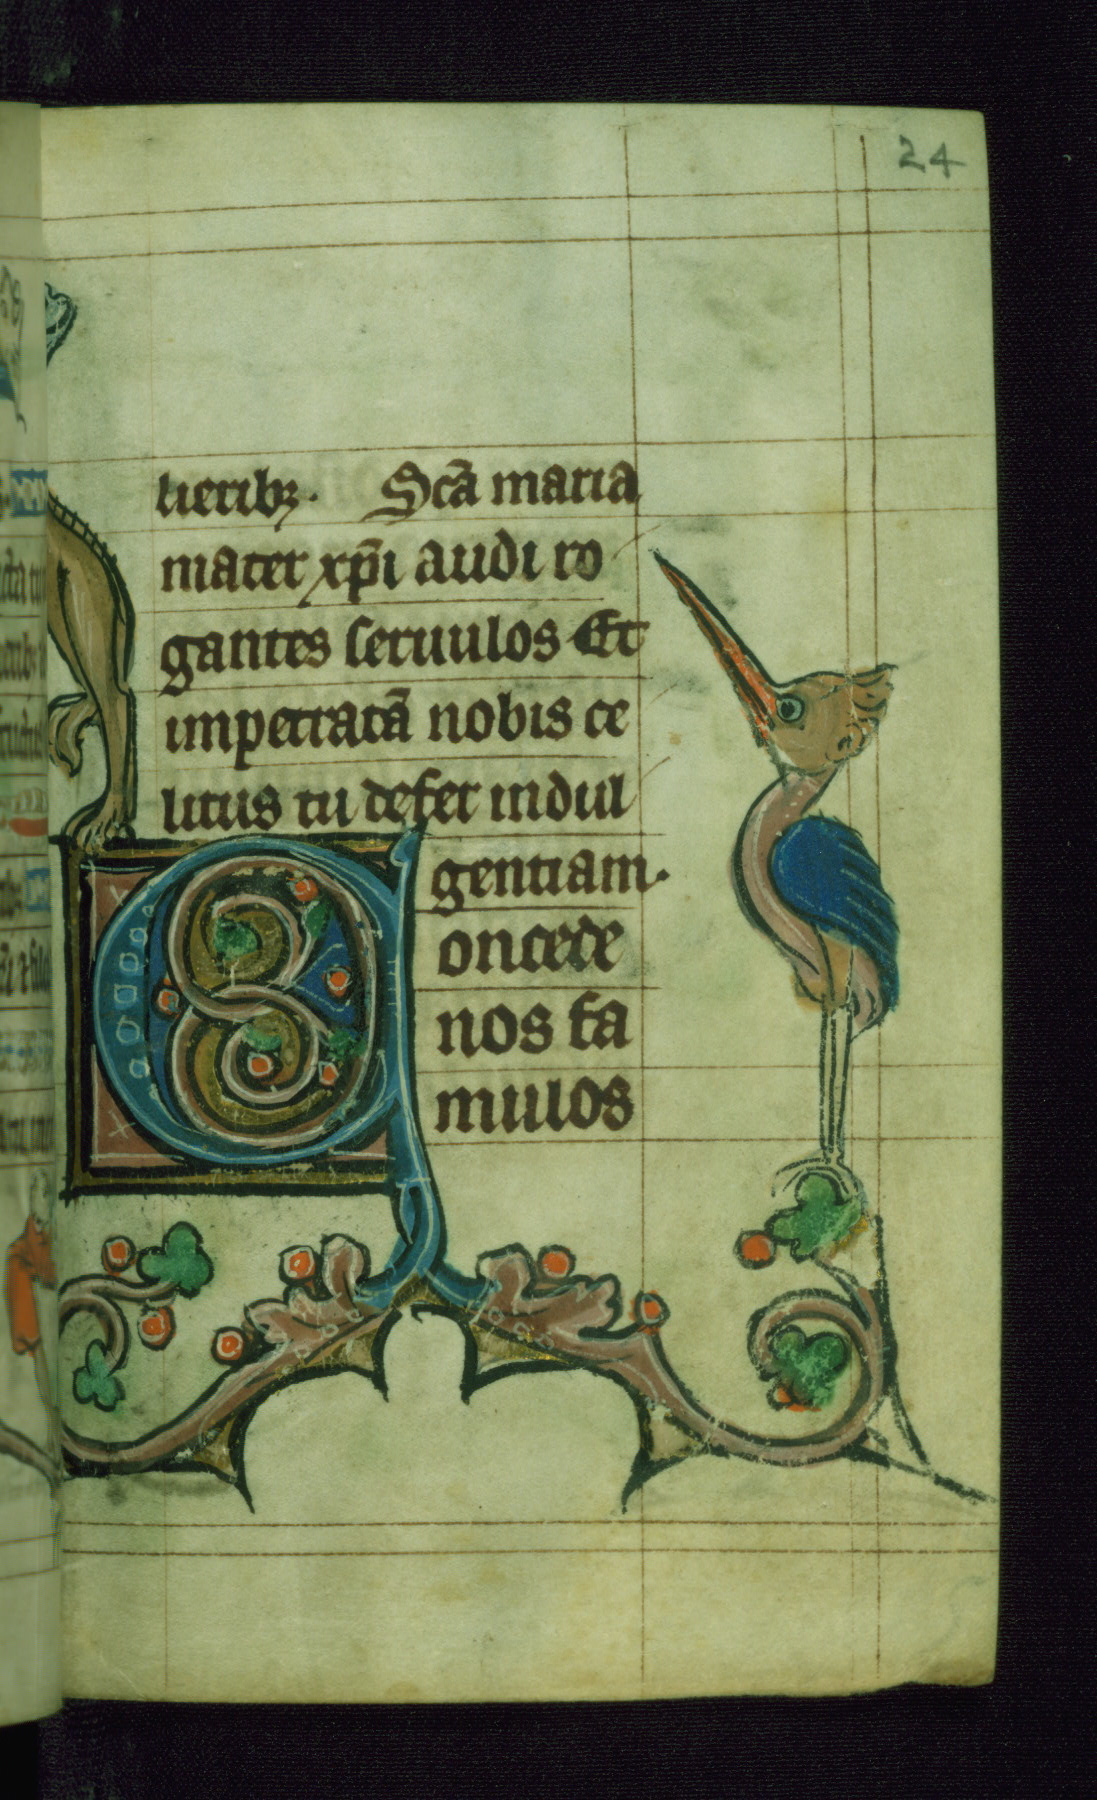 24
lieribꝫ. Scā maria
mater xp̄i audi ro
gantes seruulos Et
impetratā nobis ce
litus tu defer indul
gentiam.
Concede
nos fa
mulos